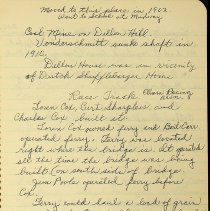 Moved to this place in 1902.
Went to school at Midway.
Coal Mine on Dillon Hill.
Vonderschmitt sunk shaft in
1910.
Dillon House was in vicinity
of Dutch Shuffleberger Home
Race Track
Loren Cox, Curt Sharpless and
Charles Cox built it.
Loren Cox owned ferry and Bert Carr
operated ferry. Ferry was located
right where the bridge is. It operated
all the time the bridge was being
built (on south side) of bridge
Jim Poole operated ferry before
Cox.
Ferry could haul a load of grain